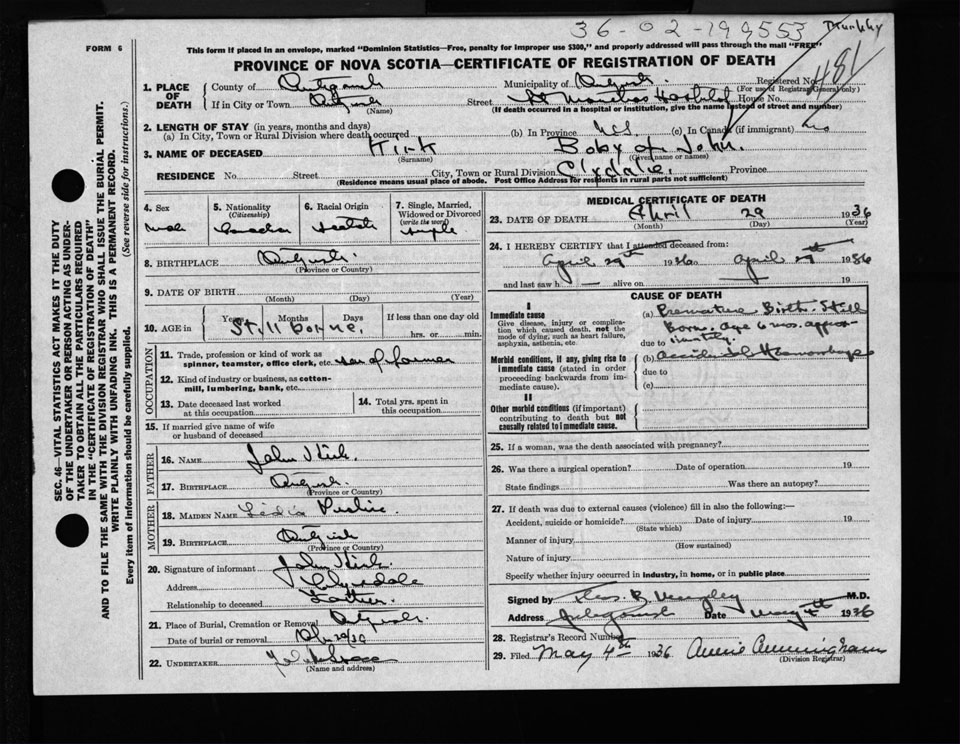 36-02-199553
481
FORM 6
This form if placed in an envelope, marked "Dominion Statistics—Free, penalty for improper use $300," and properly addressed will pass through the mail "FREE"
PROVINCE OF NOVA SCOTIA—CERTIFICATE OF REGISTRATION OF DEATH
SEC. 46—VITAL STATISTICS ACT MAKES IT THE DUTY
OF THE UNDERTAKER OR PERSON ACTING AS UNDER-
TAKER TO OBTAIN ALL THE PARTICULARS REQUIRED
IN THE "CERTIFICATE OF REGISTRATION OF DEATH"
AND TO FILE THE SAME WITH THE DIVISION REGISTRAR WHO SHALL ISSUE THE BURIAL PERMIT.
WRITE PLAINLY WITH UNFADING INK. THIS IS A PERMANENT RECORD.
Every item of information should be carefully supplied. (See reverse side for instructions.)
1. PLACE OF DEATH
County of Antigonish Municipality of Antigonish Registered No.
(For use of Registrar General only)
If in City or Town Antigonish Street St Marthas Hospital House No.
(Name) (If death occurred in a hospital or institution, give the name instead of street and number)
2. LENGTH OF STAY (in years, months and days)
(a) In City, Town or Rural Division where death occurred (b) In Province (c) In Canada (if immigrant) no
3. NAME OF DECEASED Kirk Baby of John.
(Surname) (Given name or names)
RESIDENCE No. Street City, Town or Rural Division Clydale. Province
(Residence means usual place of abode. Post Office Address for residents in rural parts not sufficient)
4. Sex
male
5. Nationality
(Citizenship)
Canadian
6. Racial Origin
Scotch
7. Single, Married,
Widowed or Divorced
(write the word)
single
8. BIRTHPLACE Antigonish
(Province or Country)
9. DATE OF BIRTH
(Month) (Day) (Year)
10. AGE in
Years Months Days If less than one day old
Still borne. hrs. or min.
OCCUPATION
11. Trade, profession or kind of work as
spinner, teamster, office clerk, etc. son of farmer
12. Kind of industry or business, as cotton-
mill, lumbering, bank, etc.
13. Date deceased last worked
at this occupation
14. Total yrs. spent in
this occupation
15. If married give name of wife
or husband of deceased
FATHER
16. NAME John Kirk.
17. BIRTHPLACE Antigonish.
(Province or Country)
MOTHER
18. MAIDEN NAME
19. BIRTHPLACE Antigonish
(Province or Country)
20. Signature of informant John Kirk.
Address Clydesdale
Relationship to deceased Father.
21. Place of Burial, Cremation or Removal Antigonish.
Date of burial or removal
22. UNDERTAKER
(Name and address)
MEDICAL CERTIFICATE OF DEATH
23. DATE OF DEATH April 29 1936
(Month) (Day) (Year)
24. I HEREBY CERTIFY that I attended deceased from:
April 29th 1936 to April 29th 1936
and last saw h — alive on — 19
CAUSE OF DEATH
I
Immediate cause
Give disease, injury or complica-
tion which caused death, not the
mode of dying, such as heart failure,
asphyxia, asthenia, etc.
(a) Premature Birth. Still
Born. Age 6 mos. approx-
imately.
due to
Morbid conditions, if any, giving rise to
immediate cause (stated in order
proceeding backwards from im-
mediate cause).
(b) Accidental Hemorrhage
due to
(c)
II
Other morbid conditions (if important)
contributing to death but not
causally related to immediate cause.
25. If a woman, was the death associated with pregnancy?
26. Was there a surgical operation? Date of operation 19
State findings Was there an autopsy?
27. If death was due to external causes (violence) fill in also the following:—
Accident, suicide or homicide? Date of injury 19
(State which)
Manner of injury
(How sustained)
Nature of injury
Specify whether injury occurred in industry, in home, or in public place
Signed by M.D.
Address Antigonish Date May 4th 1936
28. Registrar's Record Number
29. Filed May 4th 1936 Annie Cunningham
(Division Registrar)